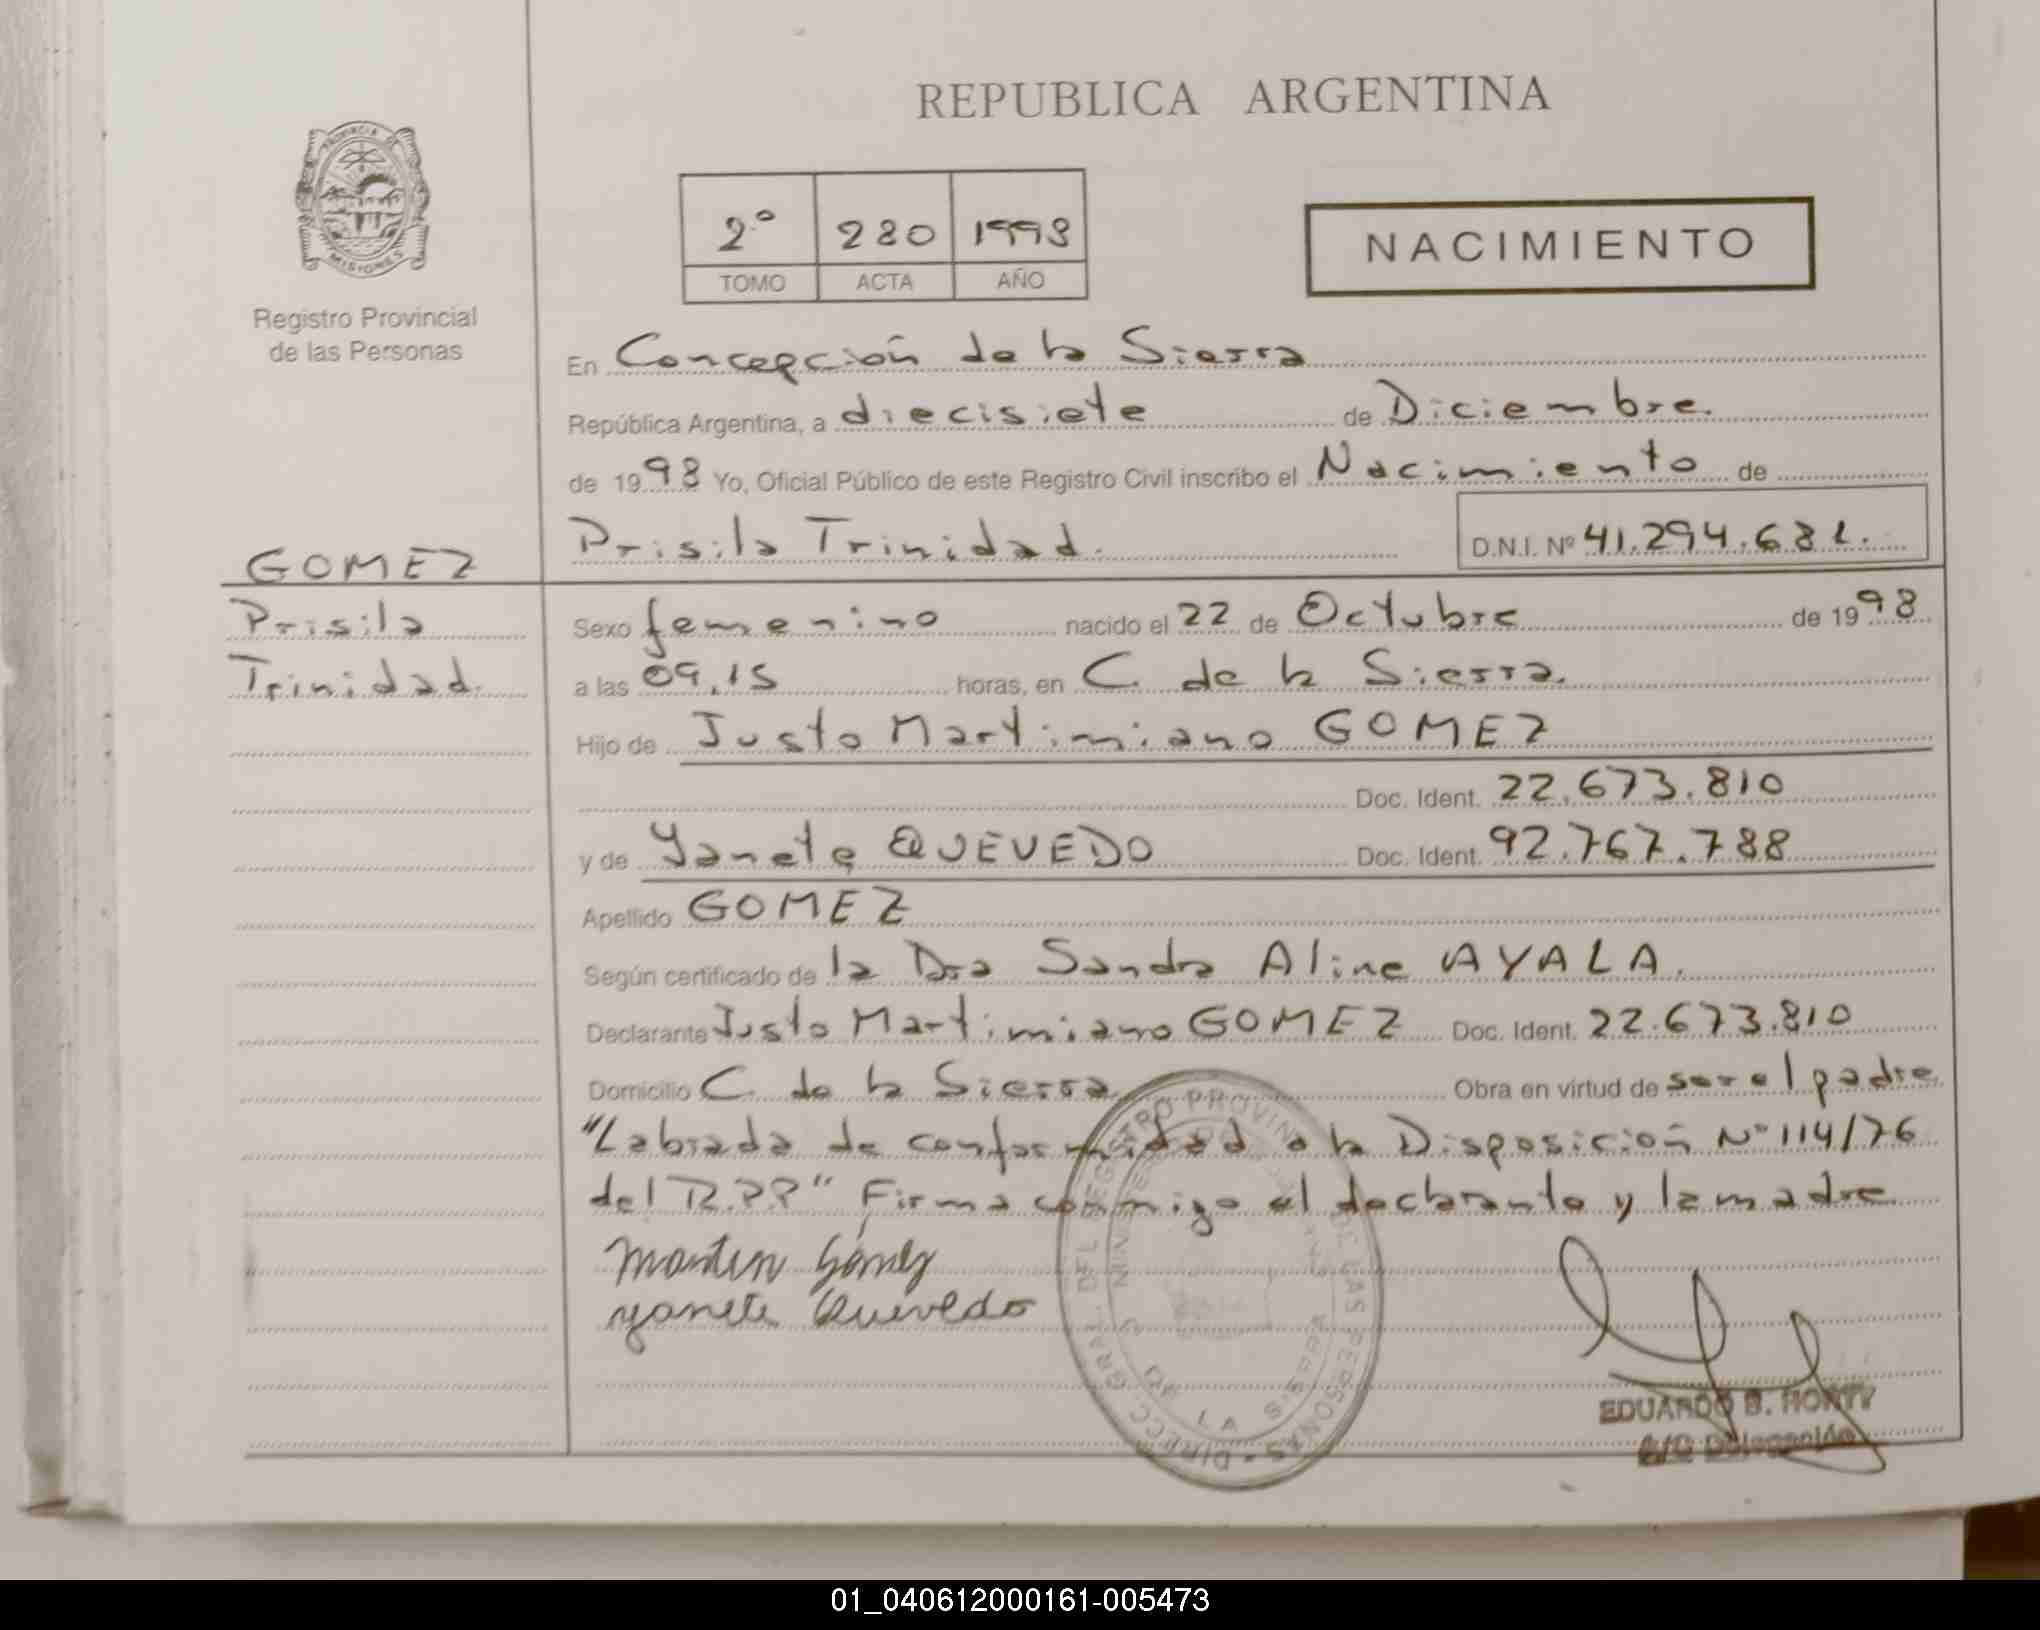 REPUBLICA ARGENTINA
PROVINCIA DE
MISIONES
Registro Provincial
de las Personas
2º 280 1998
TOMO ACTA AÑO
NACIMIENTO
En Concepción de la Sierra
República Argentina, a diecisiete de Diciembre.
de 1998 Yo, Oficial Público de este Registro Civil inscribo el Nacimiento de
Prisila Trinidad. D.N.I. Nº 41.294.681.
GOMEZ
Prisila
Trinidad.
Sexo femenino nacido el 22 de Octubre de 1998
a las 09,15 horas, en C. de la Sierra.
Hijo de Justo Martimiano GOMEZ
Doc. Ident. 22.673.810
y de Yanete QUEVEDO Doc. Ident. 92.767.788
Apellido GOMEZ
Según certificado de la Dra Sandra Aline AYALA.
Declarante Justo Martimiano GOMEZ Doc. Ident. 22.673.810
Domicilio C. de la Sierra Obra en virtud de ser el padre
"Labrada de conformidad a la Disposición Nº 114/76
del R.P.P" Firma conmigo el declarante y la madre
Martin Gómez
yanete Quevedo
DIRECC. GRAL. DEL REGISTRO PROVINCIAL DE LAS PERSONAS
C. DE LA SIERRA
EDUARDO B.
A/C Delegación
01_040612000161-005473